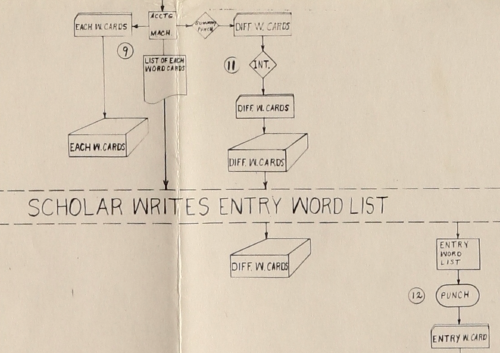 EACH W. CARDS
ACCTG
MACH.
SUMMARY
PUNCH
DIFF W. CARDS
9
LIST OF EACH
WORD CARDS
11
INT.
DIFF W. CARDS
EACH W. CARDS
DIFF. W. CARDS
SCHOLAR WRITES ENTRY WORD LIST
DIFF. W. CARDS
ENTRY
WORD
LIST
12
PUNCH
ENTRY W. CARD